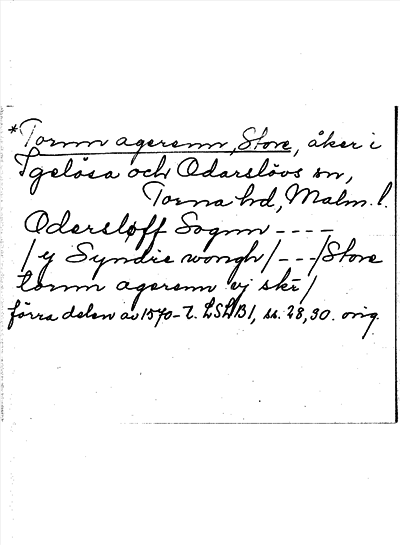 *Tornn agerenn, Store, åker i
Igelösa och Odarslövs sn,
Torna hd, Malm. l.
Odersløff Sognn ----
/y Syndre wongh/---/Store
tornn agerenn vj skr/
förra delen av 1570-t. LSLB1, ss. 28, 30. orig.